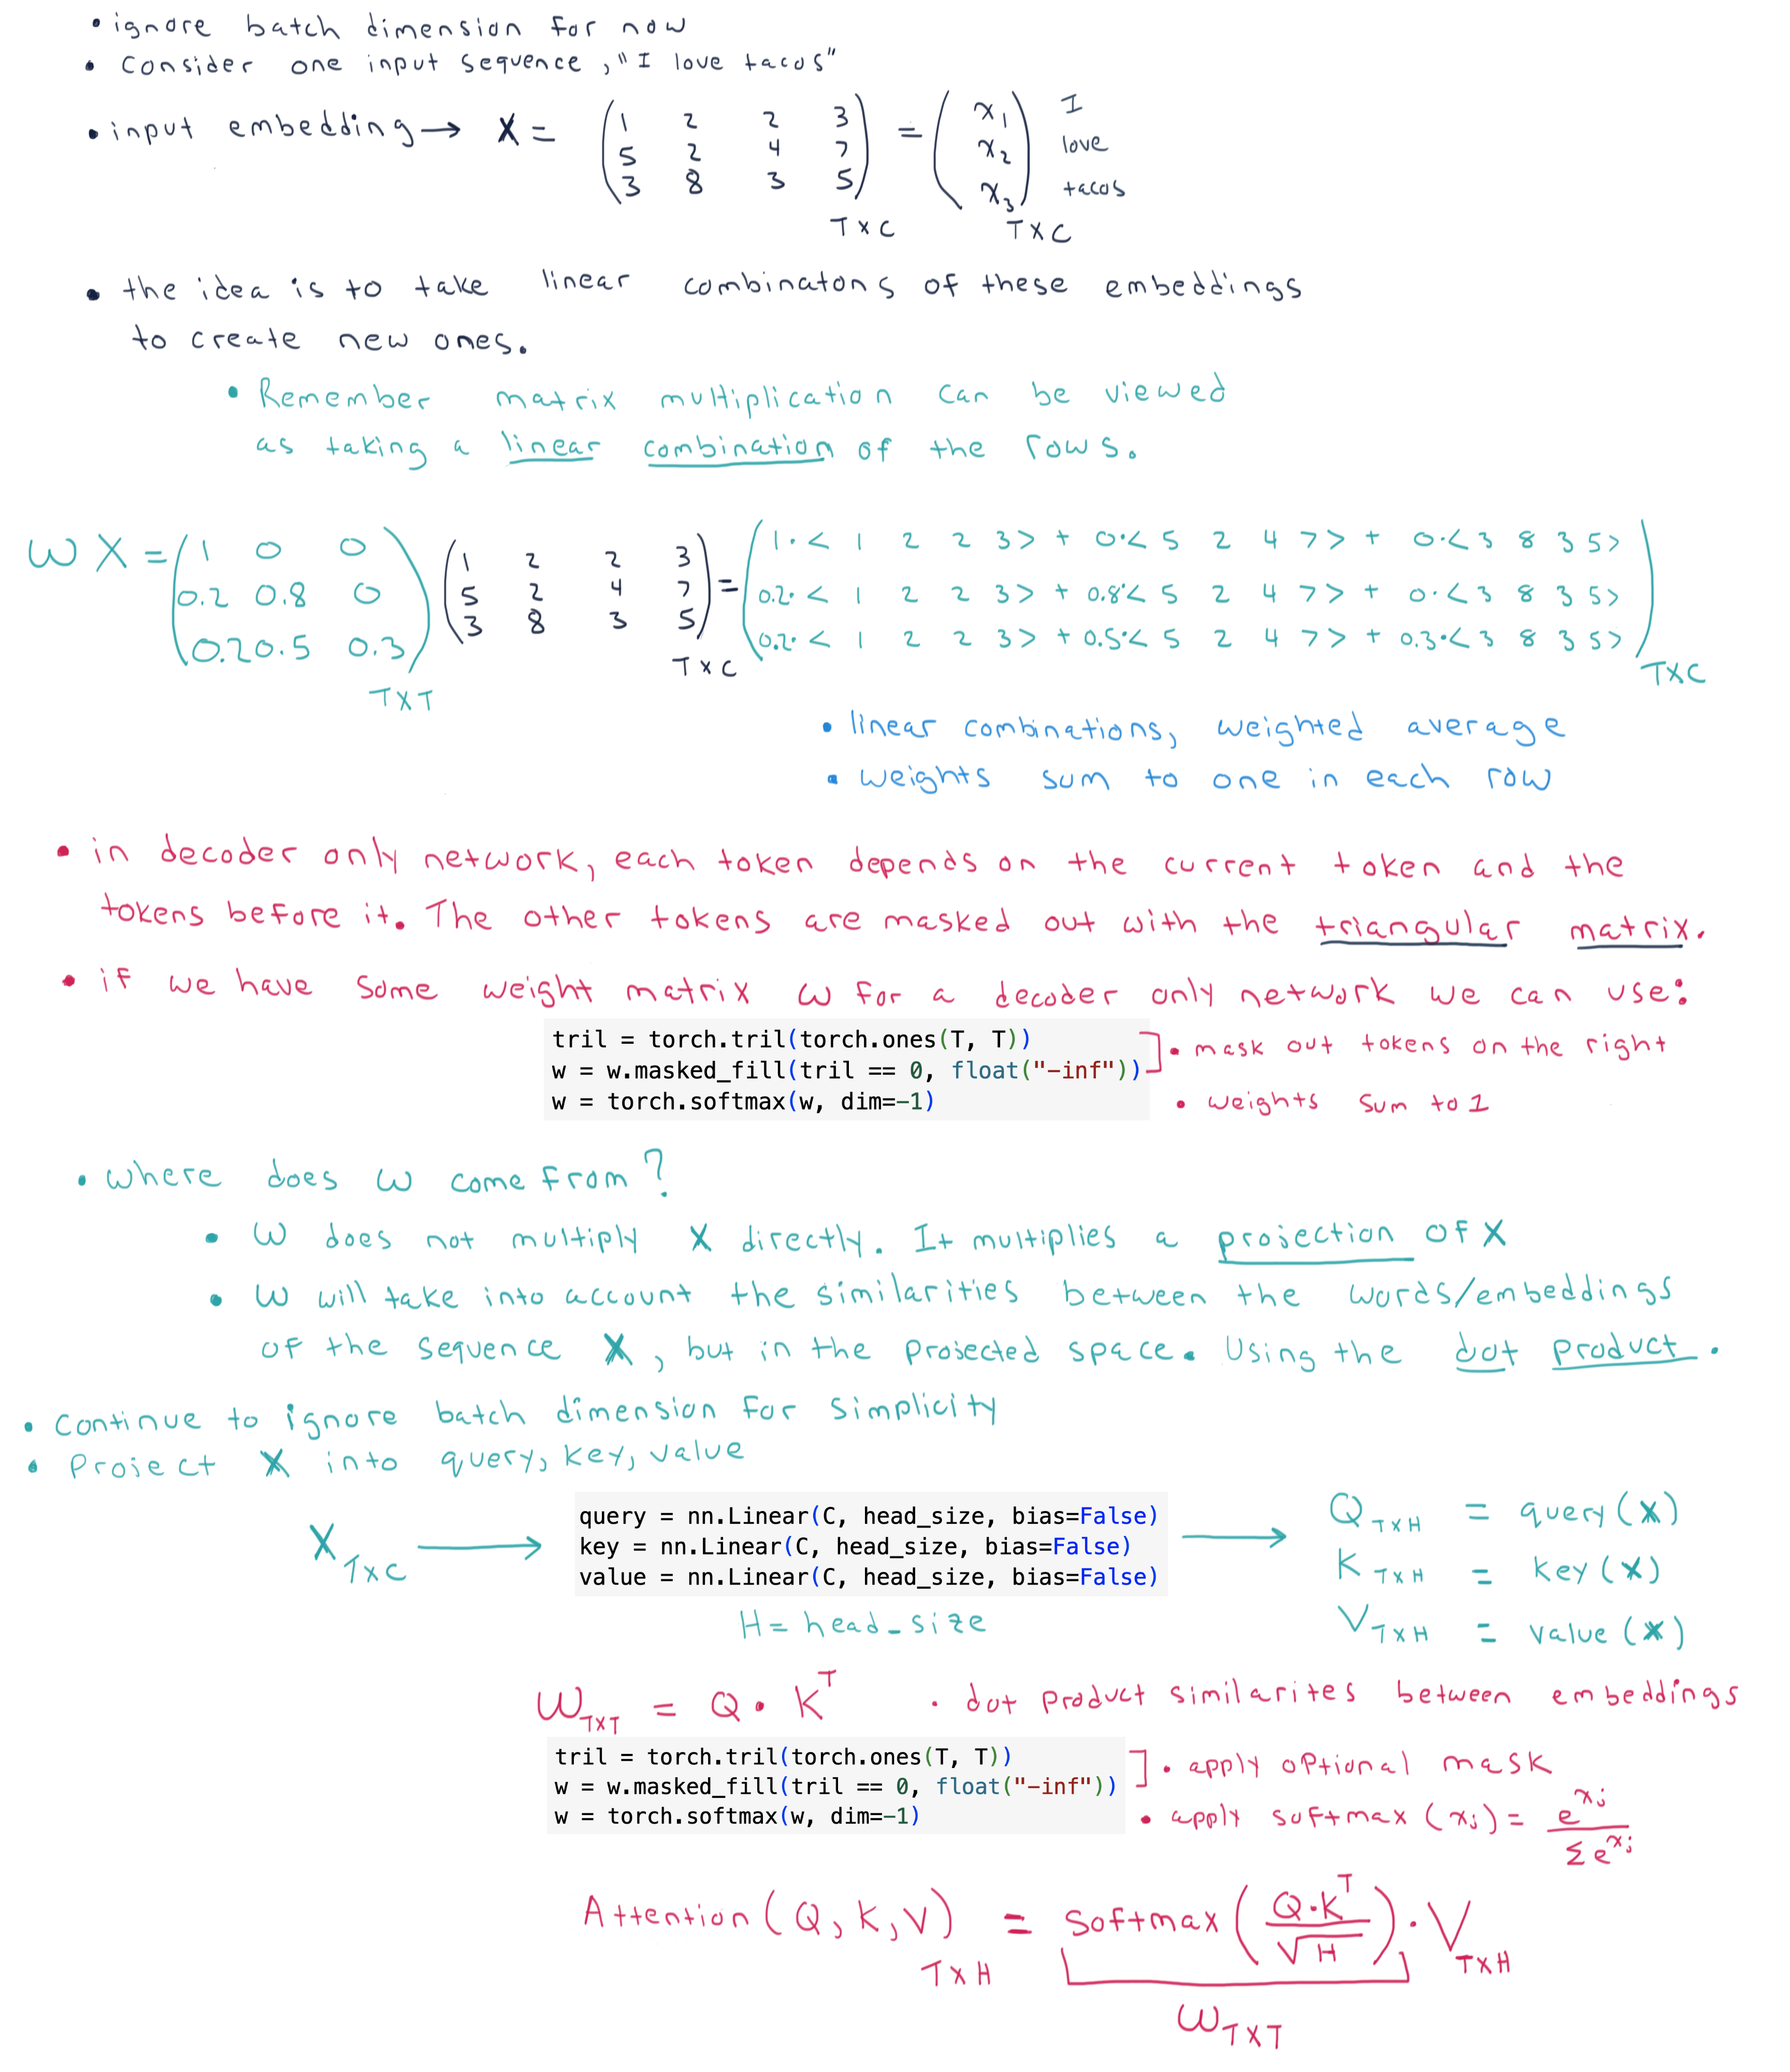 • ignore batch dimension for now
• Consider one input sequence, "I love tacos"
• input embedding → X = (1 2 2 3 = (x1 I
5 2 4 7 x2 love
3 8 3 5) x3) tacos
TxC TxC
• the idea is to take linear combinatons of these embeddings
to create new ones.
• Remember matrix multiplication can be viewed
as taking a linear combination of the rows.
W X = (1 0 0 (1 2 2 3 = (1·< 1 2 2 3> + 0·< 5 2 4 7> + 0·<3 8 3 5>
0.2 0.8 0 5 2 4 7 0.2·< 1 2 2 3> + 0.8·< 5 2 4 7> + 0·<3 8 3 5>
0.2 0.5 0.3) 3 8 3 5) 0.2·< 1 2 2 3> + 0.5·< 5 2 4 7> + 0.3·<3 8 3 5>)
TXT TxC TXC
• linear combinations, weighted average
• weights sum to one in each row
• in decoder only network, each token depends on the current token and the
tokens before it. The other tokens are masked out with the triangular matrix.
• if we have some weight matrix W for a decoder only network we can use:
tril = torch.tril(torch.ones(T, T))
w = w.masked_fill(tril == 0, float("-inf")) ] • mask out tokens on the right
w = torch.softmax(w, dim=-1) • weights sum to 1
• where does W come from?
• W does not multiply X directly. It multiplies a projection of X
• W will take into account the similarities between the words/embeddings
of the sequence X, but in the projected space. Using the dot product.
• Continue to ignore batch dimension for simplicity
• Project X into query, key, value
X TxC → query = nn.Linear(C, head_size, bias=False) → Q TxH = query(X)
key = nn.Linear(C, head_size, bias=False) K TxH = key(X)
value = nn.Linear(C, head_size, bias=False) V TxH = value(X)
H = head_size
W TXT = Q · K^T • dot product similarites between embeddings
tril = torch.tril(torch.ones(T, T)) ] • apply optional mask
w = w.masked_fill(tril == 0, float("-inf"))
w = torch.softmax(w, dim=-1) • apply softmax (xj) = e^xj / Σ e^xj
Attention(Q, K, V) TxH = softmax(Q·K^T / √H) · V TxH
W TXT